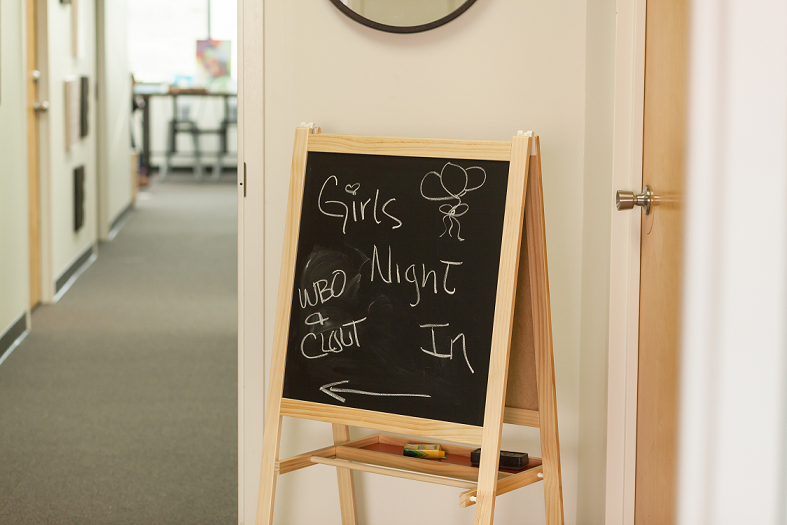 Girls
Night
In
WBO
&
CLOUT